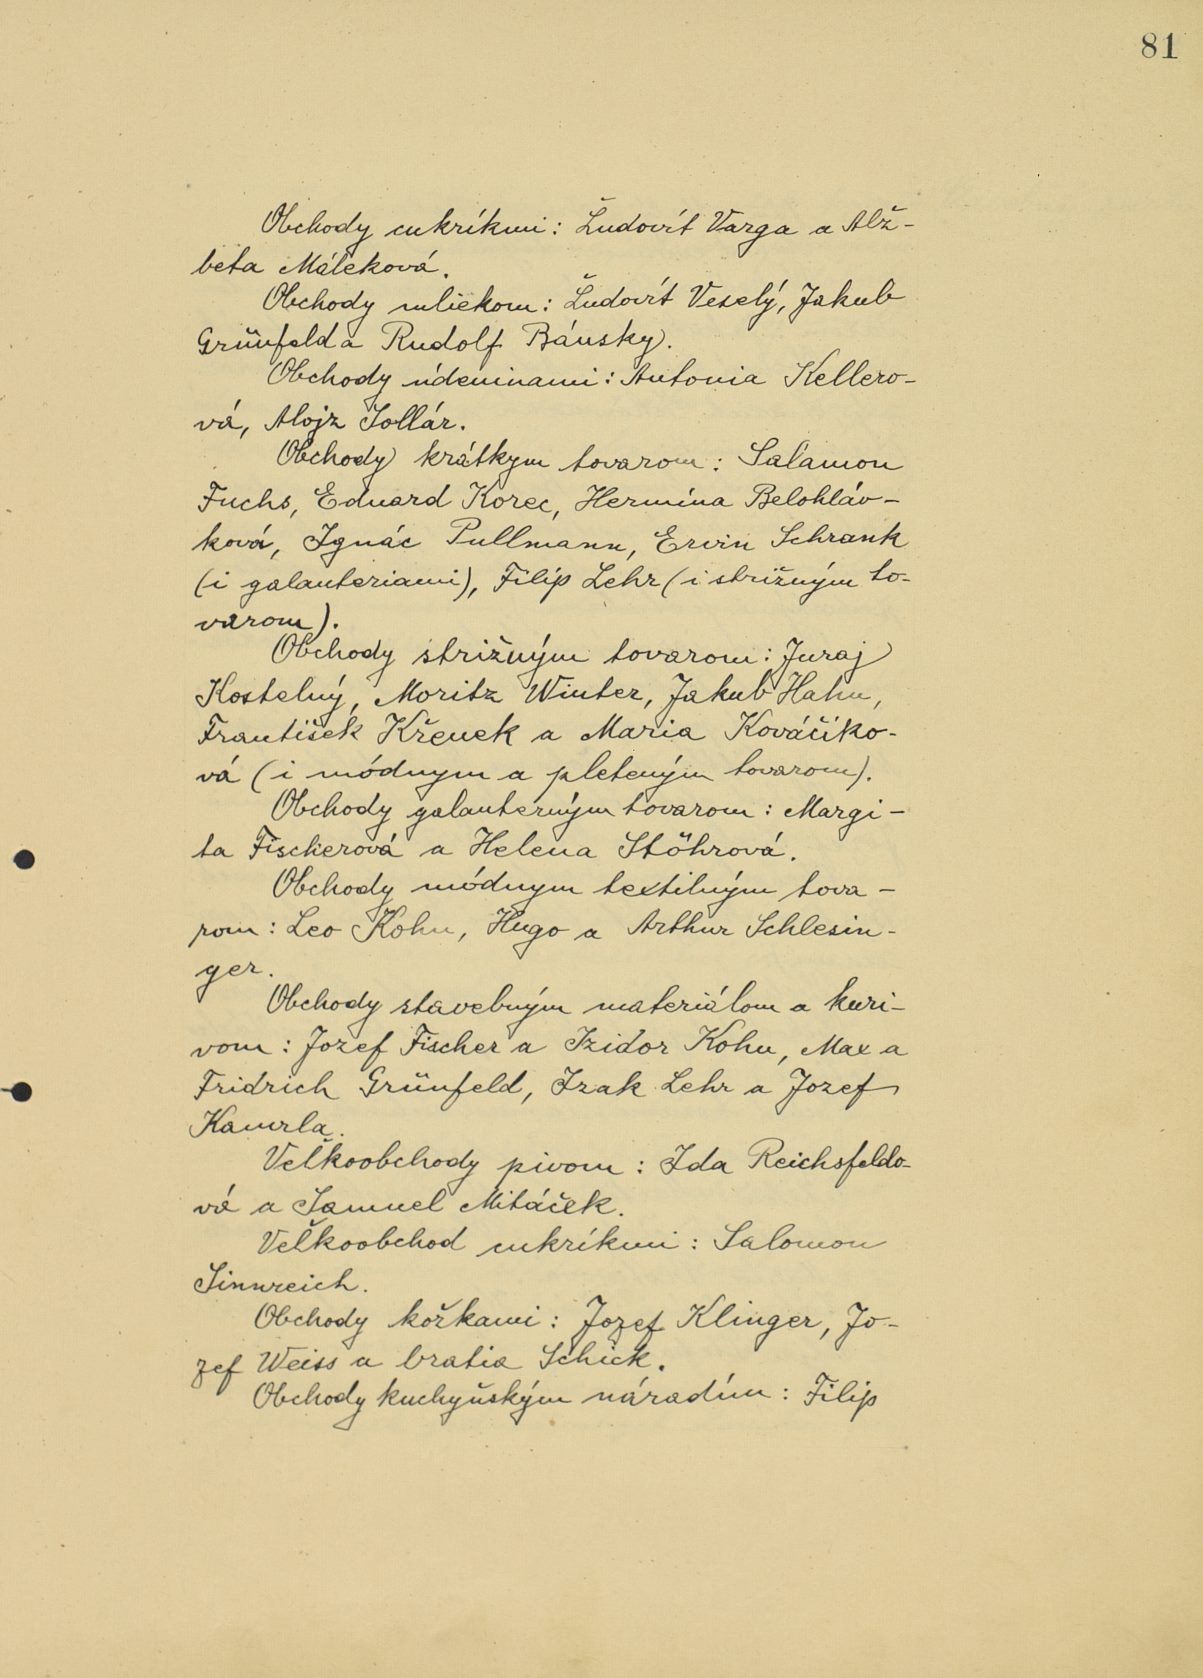 81
Obchody cukríkmi: Ľudovít Varga a Alž-
beta Máleková.
Obchody mliekom: Ľudovít Veselý, Jakub
Grünfeld a Rudolf Bánsky.
Obchody údeninami: Antonia Kellero-
vá, Alojz Sollár.
Obchody krátkym tovarom: Salamon
Fuchs, Eduard Korec, Hermína Belohláv-
ková, Ignác Pullmann, Ervin Schrank
(i galanteriami), Filip Lehr (i strižným to-
varom).
Obchody strižným tovarom: Juraj
Kostelný, Moritz Winter, Jakub Hahn,
František Křenek a Maria Kováčiko-
vá (i módnym a pleteným tovarom).
Obchody galanterným tovarom: Margi-
ta Fischerová a Helena Stöhrová.
Obchody módnym textilným tova-
rom: Leo Kohn, Hugo a Arthur Schlesin-
ger.
Obchody stavebným materiálom a kuri-
vom: Jozef Fischer a Izidor Kohn, Max a
Fridrich Grünfeld, Izak Lehr a Jozef
Kamrla.
Veľkoobchody pivom: Ida Reichsfeldo-
vá a Samuel Mitáček.
Veľkoobchod cukríkmi: Salomon
Sinnreich.
Obchody kožkami: Jozef Klinger, Jo-
zef Weiss a bratia Schick.
Obchody kuchyňským náradím: Filip